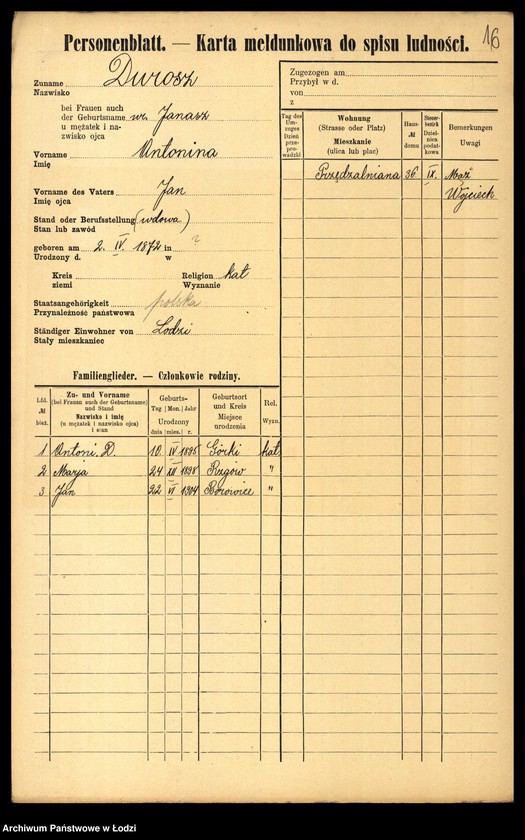 16
Personenblatt. — Karta meldunkowa do spisu ludności.
Zuname Durosz
Nazwisko
bei Frauen auch
der Geburtsname ur. Janasz
u mężatek i na-
zwisko ojca
Vorname Antonina
Imię
Vorname des Vaters Jan
Imię ojca
Stand oder Berufsstellung (wdowa)
Stan lub zawód
geboren am 2. IV. 1872 in ?
Urodzony d. w
Kreis Religion kat
ziemi Wyznanie
Staatsangehörigkeit polska
Przynależność państwowa
Ständiger Einwohner von Łodzi
Stały mieszkaniec
Zugezogen am
Przybył w d.
von
z
Tag des Um-zuges Dzień prze-prowadzki
Wohnung
(Strasse oder Platz)
Mieszkanie
(ulica lub plac)
Haus-
№
domu
Steuer-
bezirk
Dziel-
nica
podat-
kowa
Bemerkungen
Uwagi
Przędzalniana 36 IX. Mąż
Wojciech
Familienglieder. — Członkowie rodziny.
Lfd.
№
bież.
Zu- und Vorname
(bei Frauen auch der Geburtsname)
und Stand
Nazwisko i imię
(u mężatek i nazwisko ojca)
i stan
Geburts-
Tag Mon. Jahr
Urodzony
dnia mies. r.
Geburtsort
und Kreis
Miejsce
urodzenia
Rel.
Wyzn.
1 Antoni D. 10 IV 1895 Górki kat
2 Marja 24 XII 1898 Rzgów "
3 Jan 22 VI 1904 Borowice "
Archiwum Państwowe w Łodzi